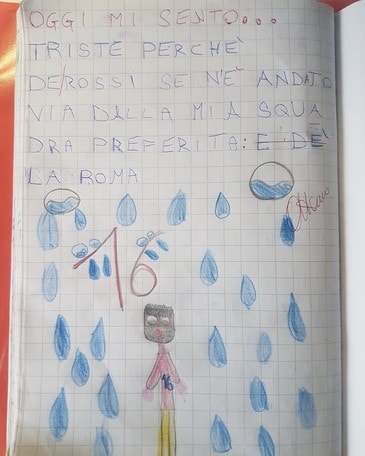 OGGI MI SENTO...
TRISTE PERCHE'
DE ROSSI SE N'È ANDATO
VIA DALLA MIA SQUA
DRA PREFERITA: E I DE'
LA ROMA
16
16